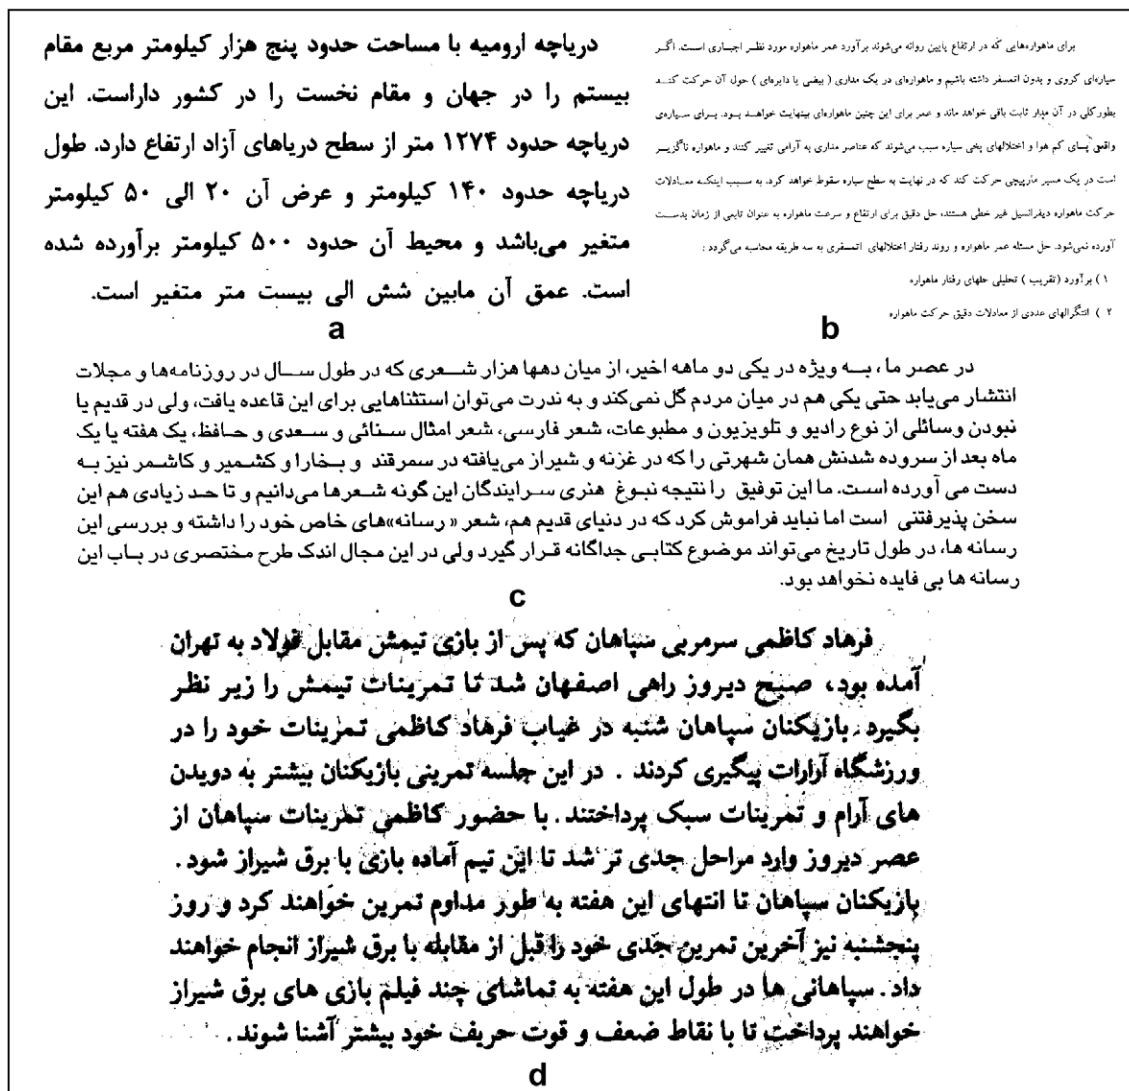 دریاچه ارومیه با مساحت حدود پنج هزار کیلومتر مربع مقام
بیستم را در جهان و مقام نخست را در کشور داراست. این
دریاچه حدود ۱۲۷۴ متر از سطح دریاهای آزاد ارتفاع دارد. طول
دریاچه حدود ۱۴۰ کیلومتر و عرض آن ۲۰ الی ۵۰ کیلومتر
متغیر می‌باشد و محیط آن حدود ۵۰۰ کیلومتر برآورده شده
است. عمق آن مابین شش الی بیست متر متغیر است.
a
برای ماهواره‌هایی که در ارتفاع پایین روانه می‌شوند برآورد عمر ماهواره مورد نظر اجباری است. اگر
سیاره‌ای کروی و بدون اتمسفر داشته باشیم و ماهواره‌ای در یک مداری ( بیضی یا دایره‌ای ) حول آن حرکت کند
بطور کلی در آن مدار ثابت باقی خواهد ماند و عمر برای این چنین ماهواره‌ای بینهایت خواهد بود. برای سیاره‌ی
واقعی کم هوا و اختلالهای پخی سیاره سبب می‌شوند که عناصر مداری به آرامی تغییر کنند و ماهواره ناگزیر
است در یک مسیر مارپیچی حرکت کند که در نهایت به سطح سیاره سقوط خواهد کرد. به سبب اینکه معادلات
حرکت ماهواره دیفرانسیل غیر خطی هستند، حل دقیق برای ارتفاع و سرعت ماهواره به عنوان تابعی از زمان بدست
آورده نمی‌شود. حل مسئله عمر ماهواره و روند رفتار اختلالهای اتمسفری به سه طریقه محاسبه می‌گردد :
۱ ) برآورد (تقریب ) تحلیلی حلهای رفتار ماهواره
۲ ) انتگرالهای عددی از معادلات دقیق حرکت ماهواره
b
در عصر ما، به ویژه در یکی دو ماهه اخیر، از میان دهها هزار شعری که در طول سال در روزنامه‌ها و مجلات
انتشار می‌یابد حتی یکی هم در میان مردم گل نمی‌کند و به ندرت می‌توان استثناهایی برای این قاعده یافت، ولی در قدیم یا
نبودن وسائلی از نوع رادیو و تلویزیون و مطبوعات، شعر فارسی، شعر امثال سنائی و سعدی و حافظ، یک هفته یا یک
ماه بعد از سروده شدنش همان شهرتی را که در غزنه و شیراز می‌یافته در سمرقند و بخارا و کشمیر و کاشمر نیز به
دست می آورده است. ما این توفیق را نتیجه نبوغ هنری سرایندگان این گونه شعرها می‌دانیم و تا حد زیادی هم این
سخن پذیرفتنی است اما نباید فراموش کرد که در دنیای قدیم هم، شعر « رسانه»های خاص خود را داشته و بررسی این
رسانه ها، در طول تاریخ می‌تواند موضوع کتابی جداگانه قرار گیرد ولی در این مجال اندک طرح مختصری در باب این
رسانه ها بی فایده نخواهد بود.
c
فرهاد کاظمی سرمربی سپاهان که پس از بازی تیمش مقابل فولاد به تهران
آمده بود، صبح دیروز راهی اصفهان شد تا تمرینات تیمش را زیر نظر
بگیرد. بازیکنان سپاهان شنبه در غیاب فرهاد کاظمی تمرینات خود را در
ورزشگاه آرارات پیگیری کردند . در این جلسه تمرینی بازیکنان بیشتر به دویدن
های آرام و تمرینات سبک پرداختند. با حضور کاظمی تمرینات سپاهان از
عصر دیروز وارد مراحل جدی تر شد تا این تیم آماده بازی با برق شیراز شود.
بازیکنان سپاهان تا انتهای این هفته به طور مداوم تمرین خواهند کرد و روز
پنجشنبه نیز آخرین تمرین جدی خود را قبل از مقابله با برق شیراز انجام خواهند
داد. سپاهانی ها در طول این هفته به تماشای چند فیلم بازی های برق شیراز
خواهند پرداخت تا با نقاط ضعف و قوت حریف خود بیشتر آشنا شوند.
d